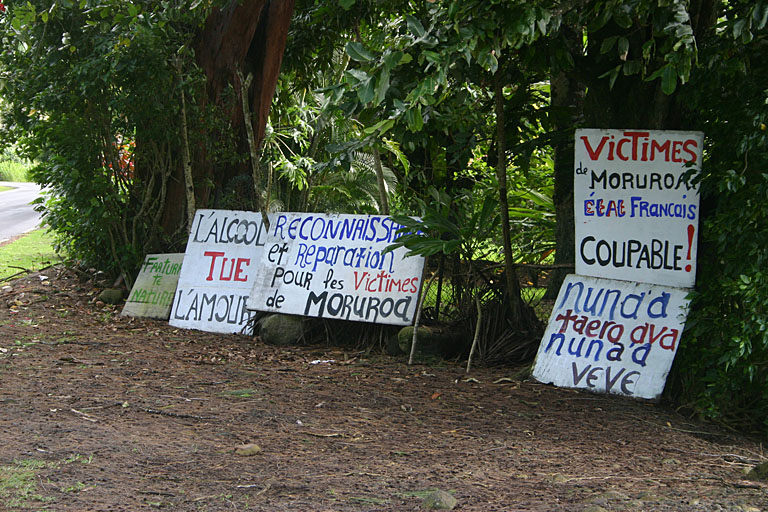 FAATURA
TE
NATURA
L'ALCOOL
TUE
L'AMOUR
RECONNAISSA
et REPARATION
POUR les VICTIMES
de MORUROA
VICTIMES
de
MORUROA
ÉTAT FRANCAIS
COUPABLE!
nunaa
taero ava
nunaa
VEVE